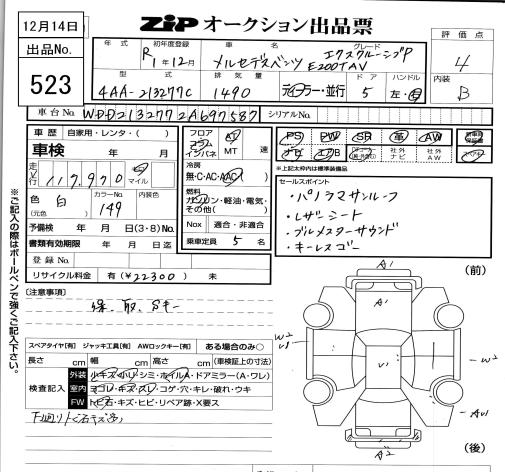 12月14日
ZiP オークション出品票
出品No.
523
年式 初年度登録 車名 グレード
R 1年12月 メルセデスベンツ エクスクルーシブP
E200T AV
評価点
4
型式 排気量 ドア ハンドル
4AA-213277C 1490 ディーラー・並行 5 左・右
内装
B
車台No. WDD2132772A697587 シリアルNo.
車歴 自家用・レンタ・( )
車検 年 月
走行 117,970 マイル
色 カラーNo. 内装色
白 149
(元色)
予備検 年 月 日(3・8)No.
書類有効期限 年 月 日迄
登録No.
リサイクル料金 有(¥22300)無
フロア AT
コラム
インパネ MT 速
冷房
無・C・AC・AAC
燃料
ガソリン・軽油・電気・
その他( )
Nox 適合・非適合
乗車定員 5 名
PS PW SR 革 AW
ナビ エアB 社外ナビ 社外AW
※上記太枠内は標準装備品
セールスポイント
・パノラマサンルーフ
・レザーシート
・ブルメスターサウンド
・キーレスゴー
※ご記入の際はボールペンで強くご記入下さい。
[注意事項]
保、取、Sキー
スペアタイヤ[有] ジャッキ工具[有] AWロックキー[有] ある場合のみ○
長さ cm 幅 cm 高さ cm (車検証上の寸法)
検査記入
外装 小キズ・小凹・シミ・ホイルA・ドアミラー(A・ワレ)
室内 ヨゴレ・キズ・スレ・コゲ・穴・キレ・破れ・ウキ
FW トビ石・キズ・ヒビ・リペア跡・X要ス
下廻りトビ石キズ多
(前)
A1
A1
W2
U1
U1
W2
AU1
A2
(後)